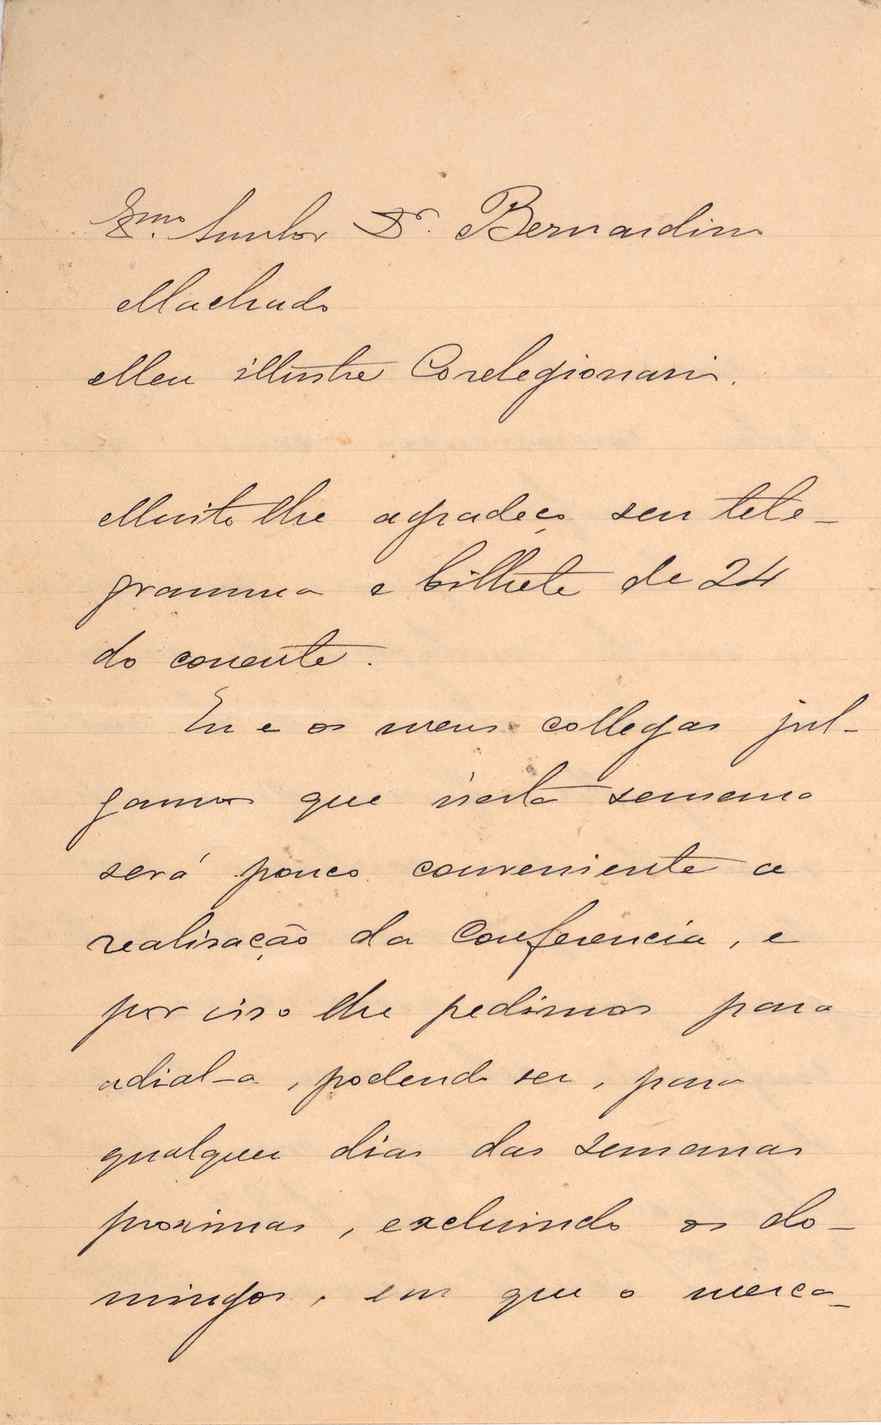 Exmo. Senhor Dr. Bernardino
Machado
Meu illustre Corelegionario.
Muito lhe agradeço seu tele-
gramma e bilhete de 24
do corrente.
Eu e os meus collegas jul-
gamos que n'esta semana
será pouco conveniente a
realisação da Conferencia, e
por isso lhe pedimos para
adial-a, podendo ser, para
qualquer dias das semanas
proximas, excluindo os do-
mingos, em que o merca-